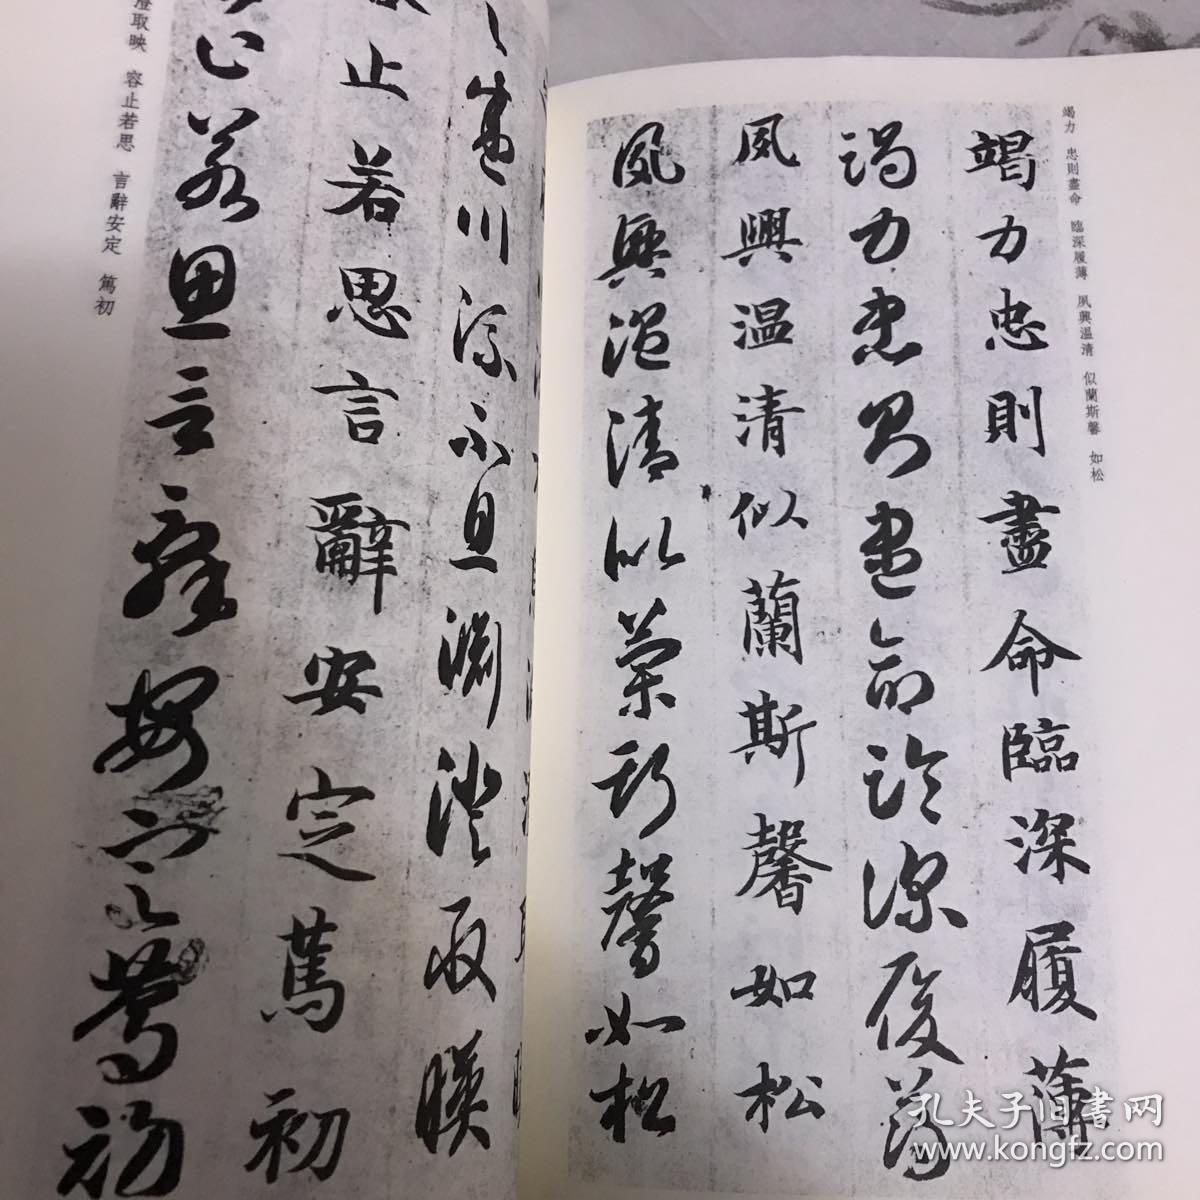 竭力 忠則盡命 臨深履薄 夙興溫凊 似蘭斯馨 如松
竭力忠則盡命臨深履薄
竭力忠則盡命臨深履薄
夙興温清似蘭斯馨如松
夙興温清似蘭斯馨如松
川流不息淵澄取暎
止若思言辭安定篤初
止若思言辭安定篤初
澄取映 容止若思 言辭安定 篤初
孔夫子旧书网
www.kongfz.com